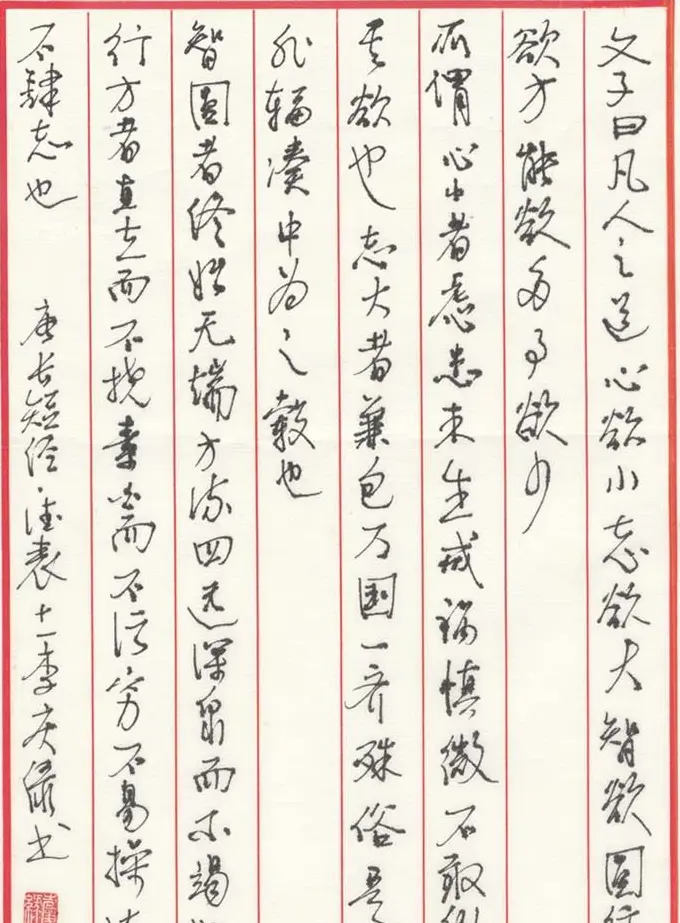 文子曰凡人之道心欲小志欲大智欲圆行
欲方能欲多事欲少
所谓心小者虑患未生戒祸慎微不敢纵
其欲也志大者兼包万国一齐殊俗是
非辐凑中为之毂也
智圆者终始无端方流四远深泉而不竭
行方者直立而不挠素白而不污穷不易操
不肆志也
唐长短经·德表十一李庆书